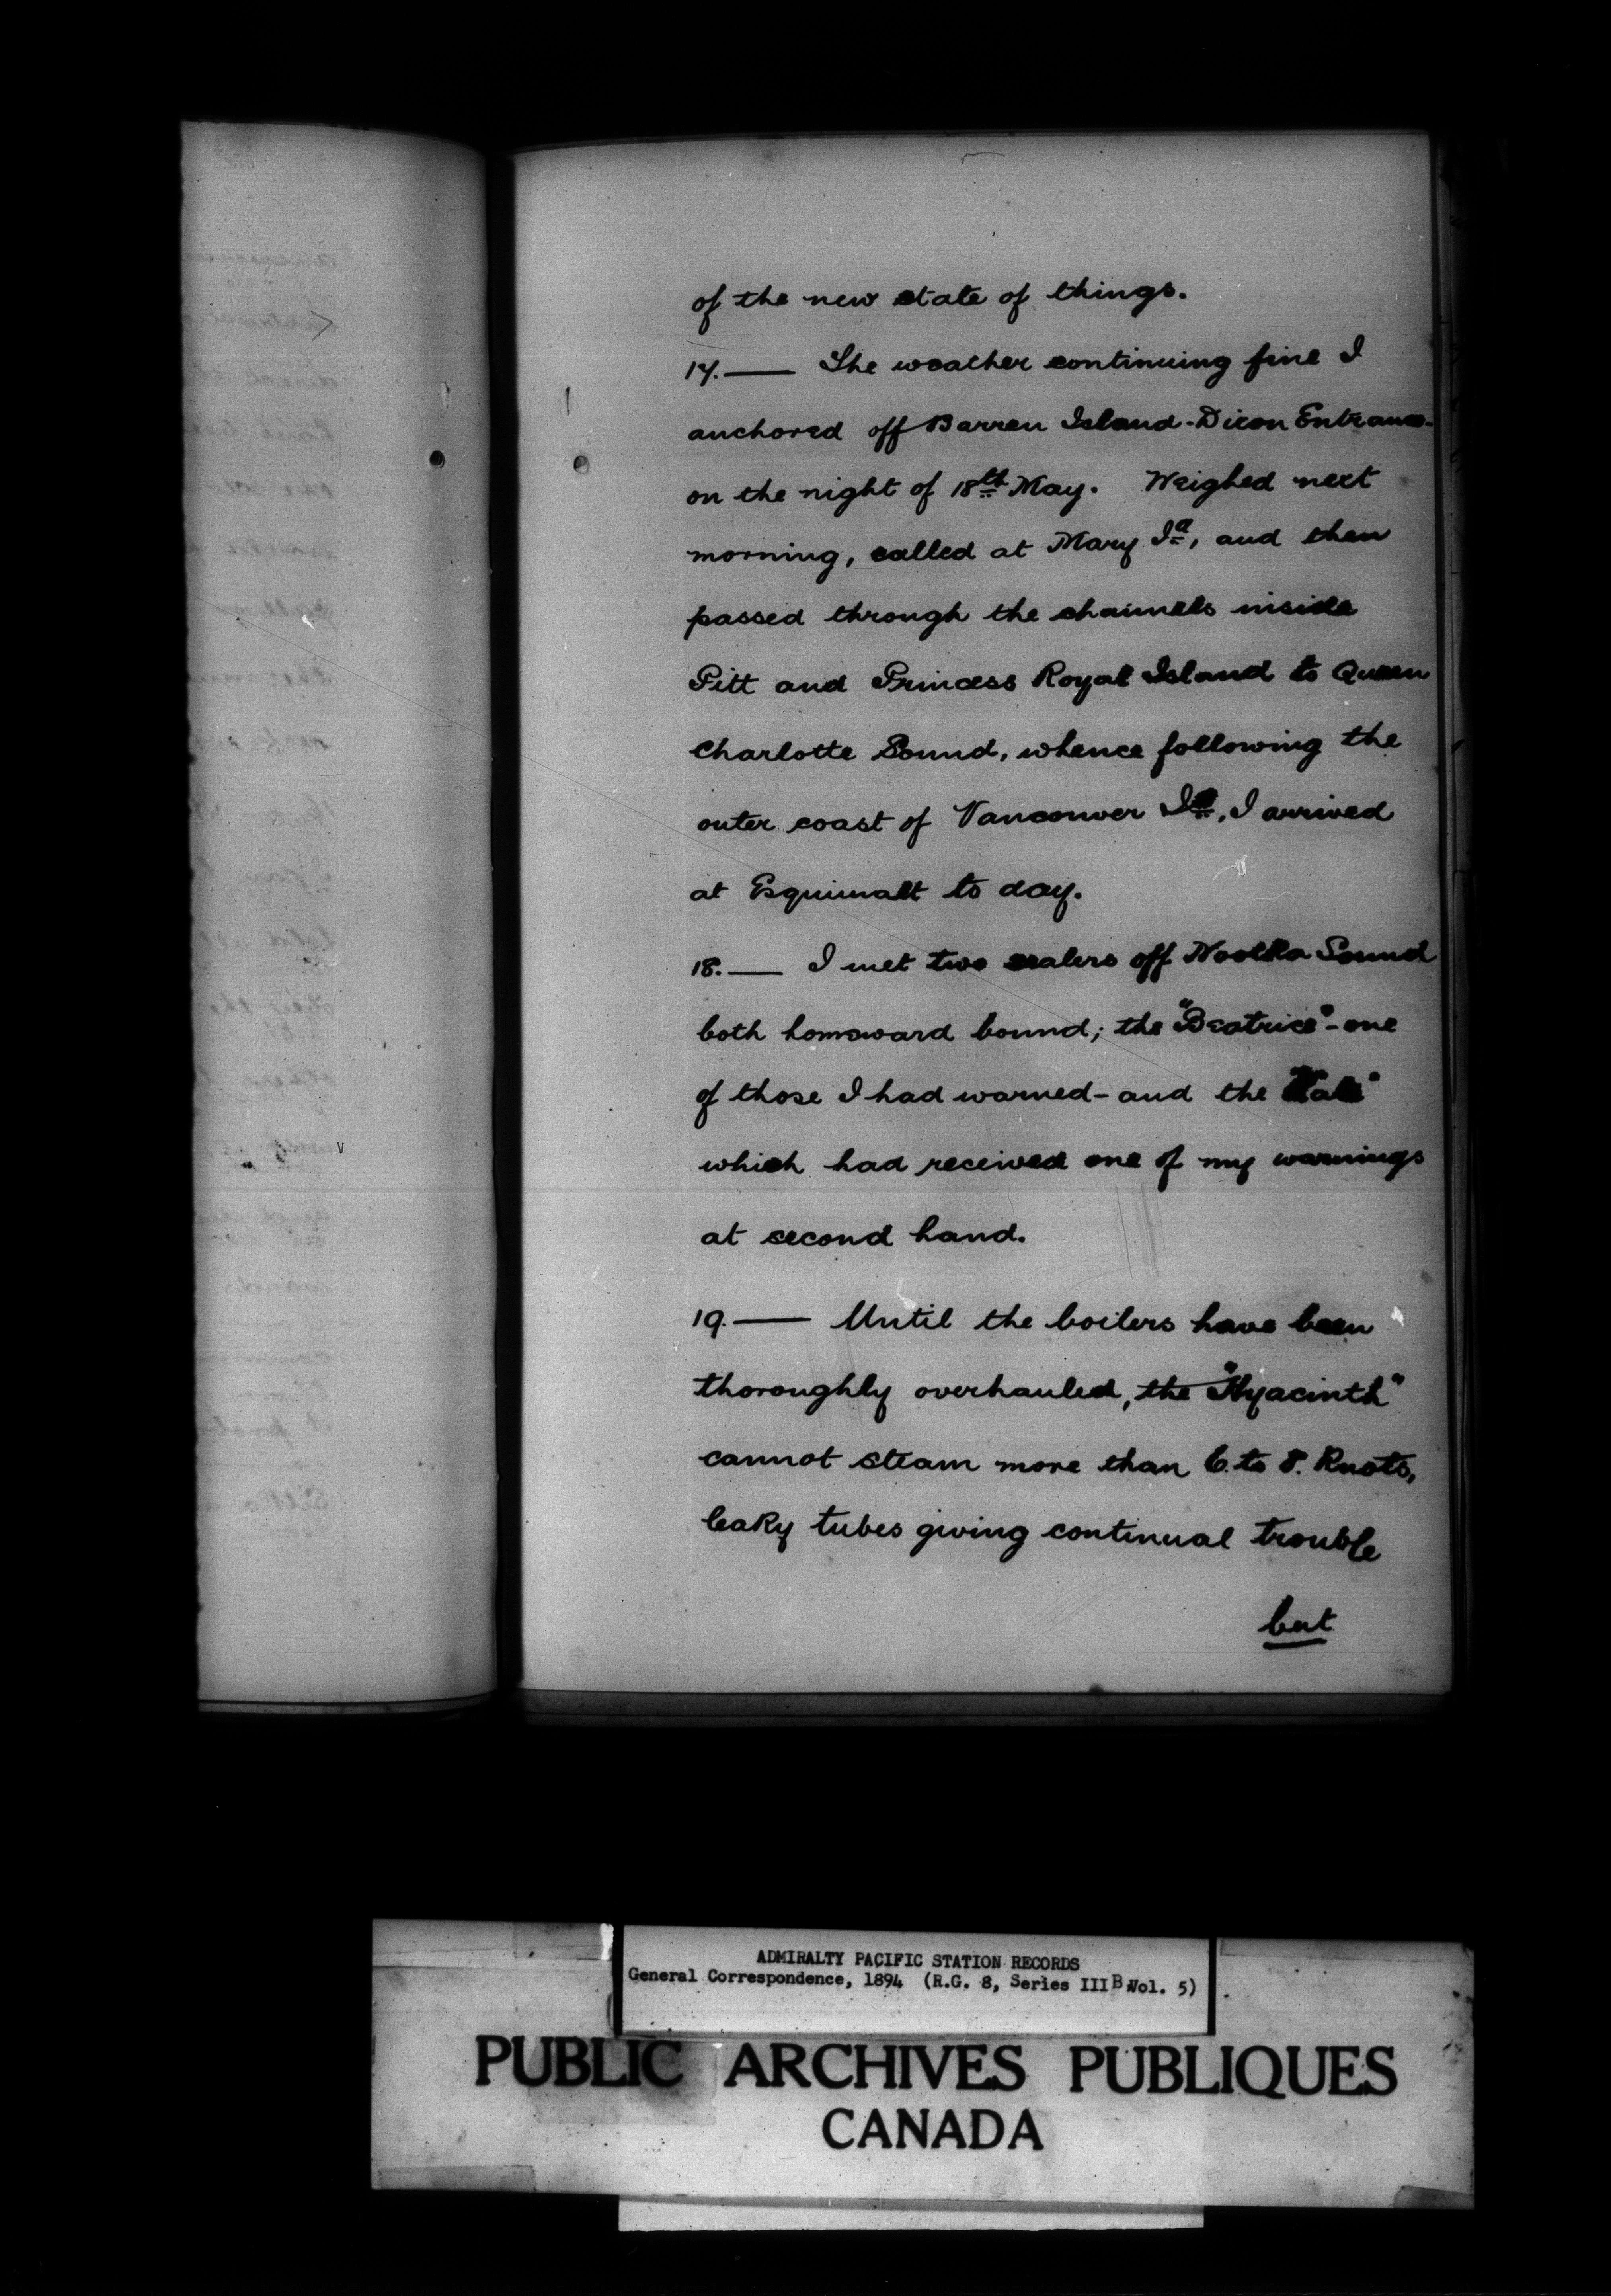 of the new state of things.
17. — The weather continuing fine I
anchored off Barren Island - Dixon Entrance -
on the night of 18th May. Weighed next
morning, called at Mary Id, and then
passed through the channels inside
Pitt and Princess Royal Island to Queen
Charlotte Sound, whence following the
outer coast of Vancouver Id, I arrived
at Esquimalt to day.
18. — I met two sealers off Nootka Sound
both homeward bound; the "Beatrice" - one
of those I had warned - and the "Kate"
which had received one of my warnings
at second hand.
19. — Until the boilers have been
thoroughly overhauled, the "Hyacinth"
cannot steam more than 6. to 8. Knots,
leaky tubes giving continual trouble
but
ADMIRALTY PACIFIC STATION RECORDS
General Correspondence, 1894 (R.G. 8, Series III B Vol. 5)
PUBLIC ARCHIVES PUBLIQUES
CANADA